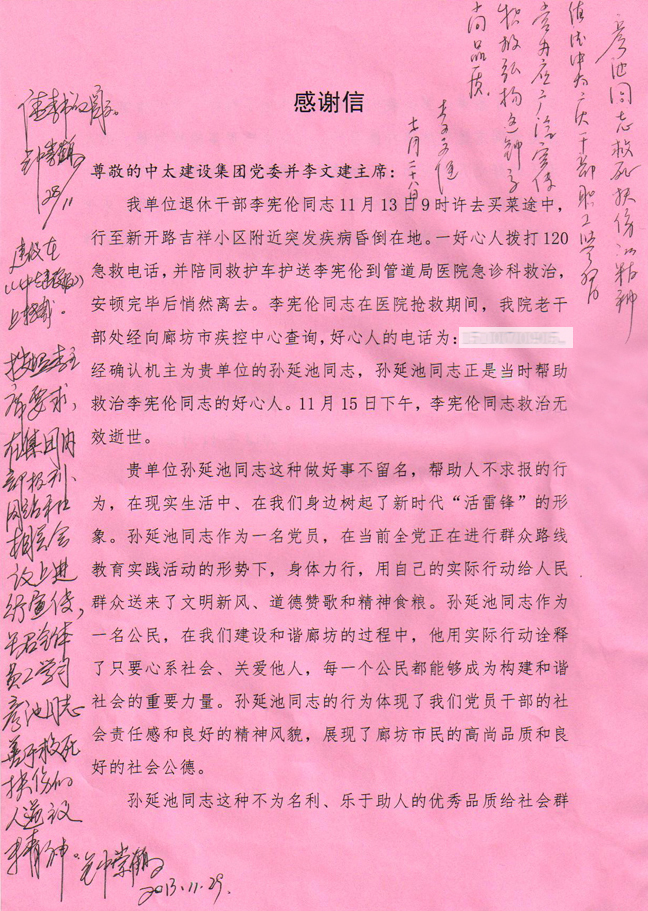 感谢信
尊敬的中太建设集团党委并李文建主席：
我单位退休干部李宪伦同志11月13日9时许去买菜途中，
行至新开路吉祥小区附近突发疾病昏倒在地。一好心人拨打120
急救电话，并陪同救护车护送李宪伦到管道局医院急诊科救治，
安顿完毕后悄然离去。李宪伦同志在医院抢救期间，我院老干
部处经向廊坊市疾控中心查询，好心人的电话为：
经确认机主为贵单位的孙延池同志，孙延池同志正是当时帮助
救治李宪伦同志的好心人。11月15日下午，李宪伦同志救治无
效逝世。
贵单位孙延池同志这种做好事不留名，帮助人不求报的行
为，在现实生活中、在我们身边树起了新时代“活雷锋”的形
象。孙延池同志作为一名党员，在当前全党正在进行群众路线
教育实践活动的形势下，身体力行，用自己的实际行动给人民
群众送来了文明新风、道德赞歌和精神食粮。孙延池同志作为
一名公民，在我们建设和谐廊坊的过程中，他用实际行动诠释
了只要心系社会、关爱他人，每一个公民都能够成为构建和谐
社会的重要力量。孙延池同志的行为体现了我们党员干部的社
会责任感和良好的精神风貌，展现了廊坊市民的高尚品质和良
好的社会公德。
孙延池同志这种不为名利、乐于助人的优秀品质给社会群
彦池同志救死扶伤的精神
值得中太广大干部职工学习
党办应广泛宣传
积极弘扬这种高
尚品质。
十一月二十八日
28/11
建议在
上报载。
按照李主
席要求，
在集团内
部报刊、
网站和
相关会
议上进
行宣传，
号召全体
员工学习
彦池同志
善于救死
扶伤的
人道主义
精神。
2013.11.29.